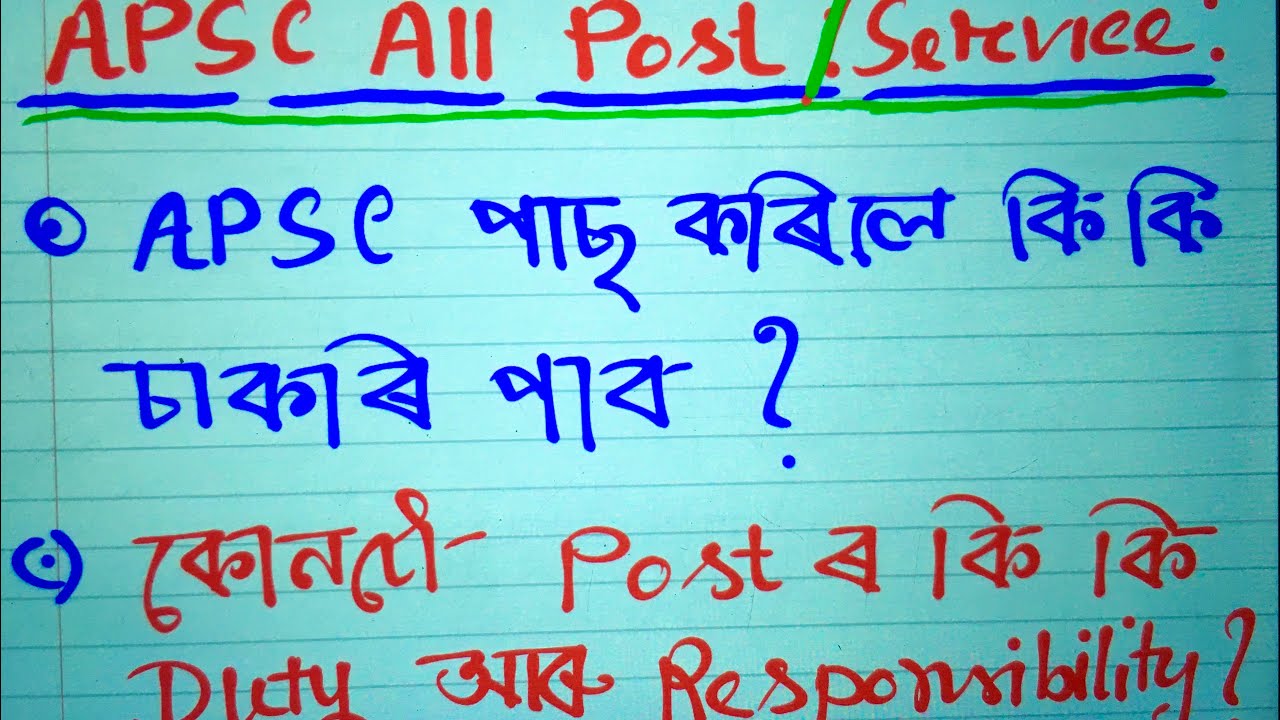 APSC All Post / Service:
APSC পাছ কৰিলে কি কি
চাকৰি পাব ?
কোনটো Post ৰ কি কি
Duty আৰু Responsibility?